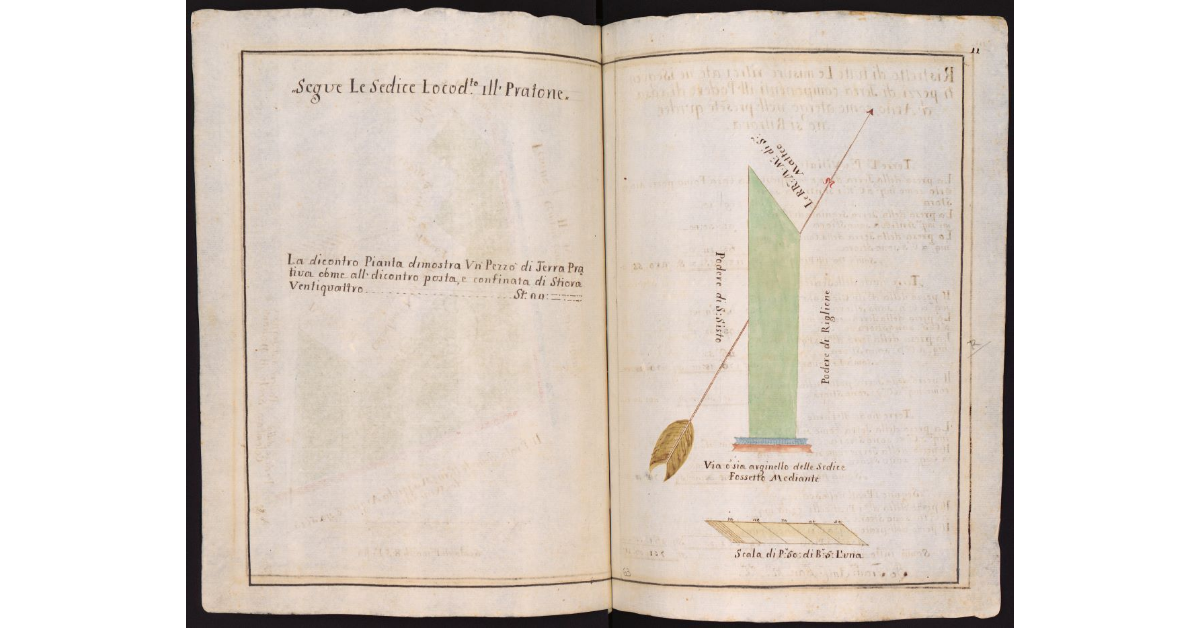 Segue Le Sedice Locod.to Ill. Pratone.
La dicontro Pianta dimostra Vn Pezzo di Terra Pra
tiva come all. dicontro posta, e confinata di Stiora
Ventiquattro
St:
11
Le RR. M. M. di S.
Matteo
Podere di S: Sisto
Podere di Riglione
Via o sia arginello delle Sedice
Fossetto Mediante
Scala di P. 50: di B. 5: L'una